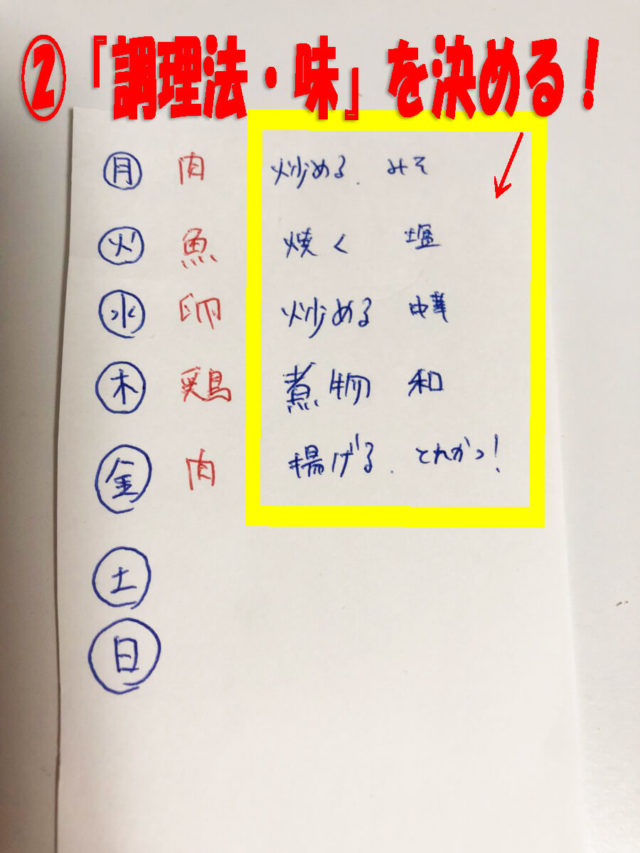 ②「調理法・味」を決める！
月 肉 炒める. みそ
火 魚 焼く 塩
水 卵 炒める 中華
木 鶏 煮物 和
金 肉 揚げる. とんかつ!
土
日